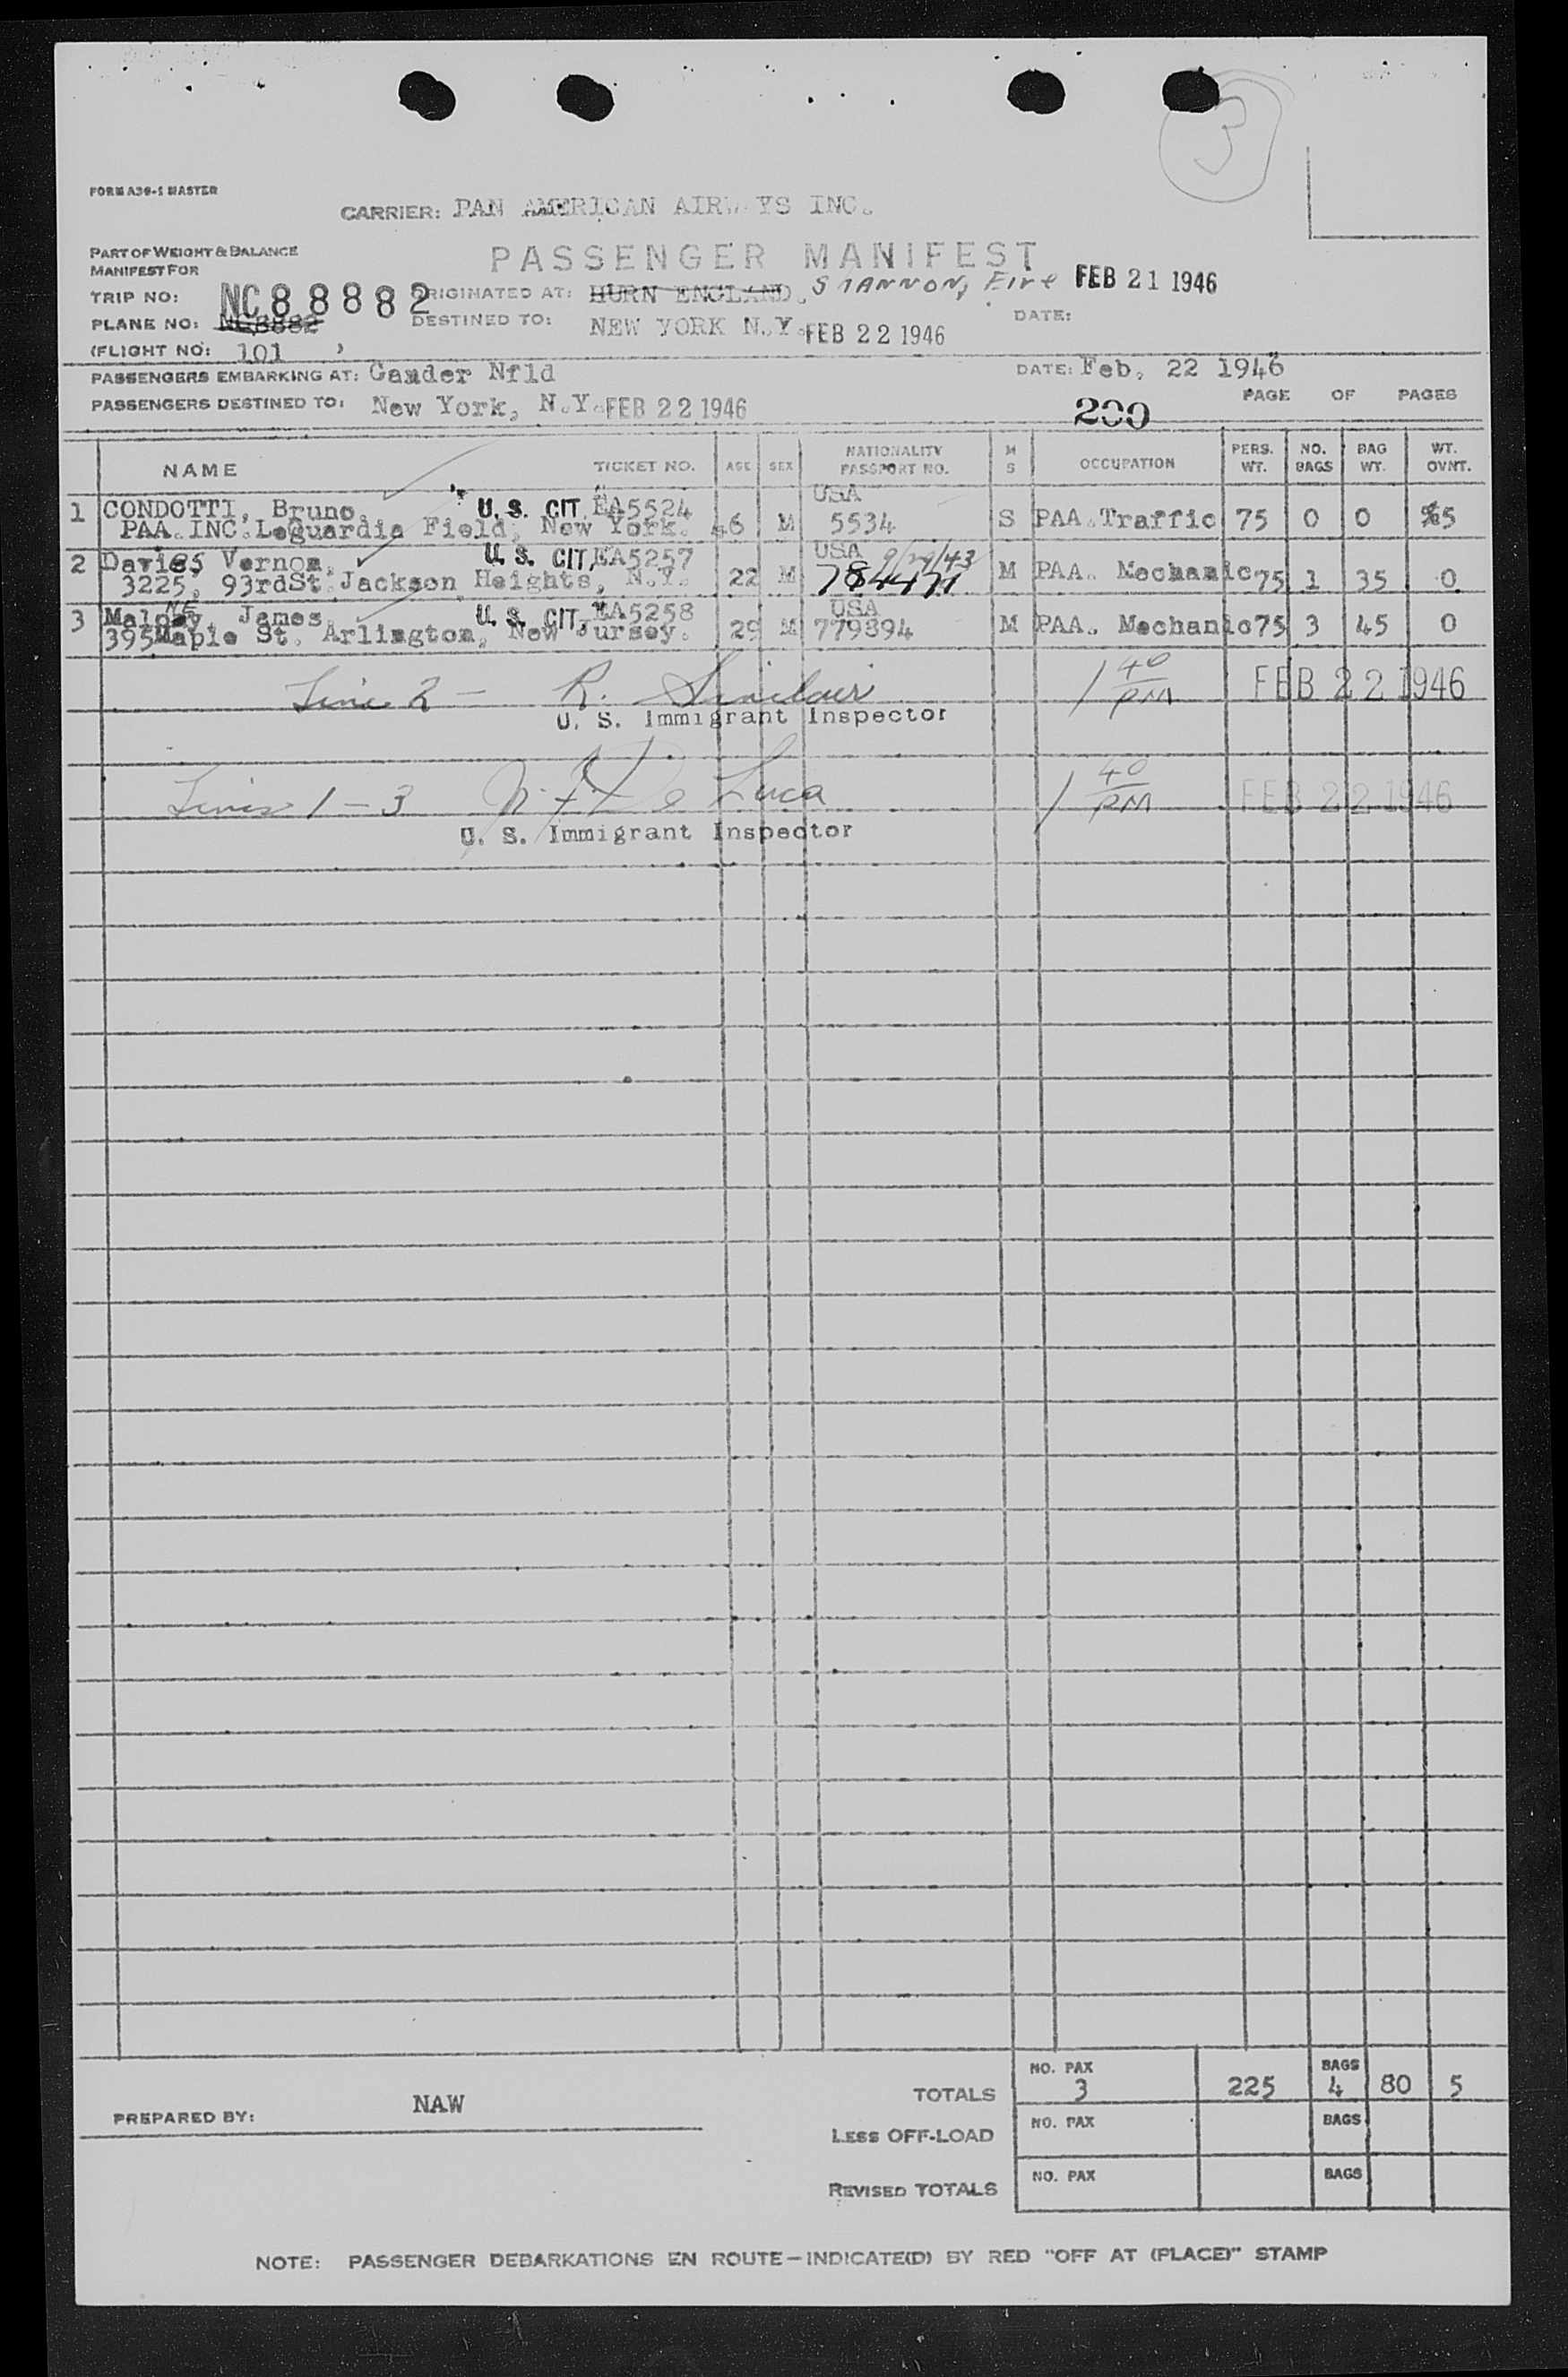 3
FORM A30-1 MASTER
CARRIER: PAN AMERICAN AIRWAYS INC.
PART OF WEIGHT & BALANCE
MANIFEST FOR
PASSENGER MANIFEST
TRIP NO: NC88882 ORIGINATED AT: HURN ENGLAND. SHANNON, Eire FEB 21 1946
PLANE NO: NC8882 DESTINED TO: NEW YORK N.Y. FEB 22 1946 DATE:
(FLIGHT NO: 101 )
PASSENGERS EMBARKING AT: Gander Nfld DATE: Feb, 22 1946
PASSENGERS DESTINED TO: New York, N.Y. FEB 22 1946 200 PAGE OF PAGES
NAME TICKET NO. AGE SEX NATIONALITY PASSPORT NO. M S OCCUPATION PERS. WT. NO. BAGS BAG WT. WT. OVNT.
1 CONDOTTI, Bruno. U.S. CIT. EA5524 USA
PAA.INC.Leguardia Field, New York. 46 M 5534 S PAA.Traffic 75 0 0 5
2 Davies Vernon, U.S. CIT. EA5257 USA 9/29/43
3225, 93rdSt.Jackson Heights, N.Y. 22 M 784471 M PAA. Mechanic 75 1 35 0
3 Maloney, James. U.S. CIT. EA5258 USA
395Maple St, Arlington, New Jursey. 29 M 779894 M PAA. Mechanic 75 3 45 0
Line 2 - R. Sinclair 1 40 PM FEB 22 1946
U. S. Immigrant Inspector
Lines 1-3 De Luca 1 40 PM FEB 22 1946
U. S. Immigrant Inspector
TOTALS NO. PAX 3 225 BAGS 4 80 5
PREPARED BY: NAW
LESS OFF-LOAD NO. PAX BAGS
REVISED TOTALS NO. PAX BAGS
NOTE: PASSENGER DEBARKATIONS EN ROUTE—INDICATE(D) BY RED "OFF AT (PLACE)" STAMP